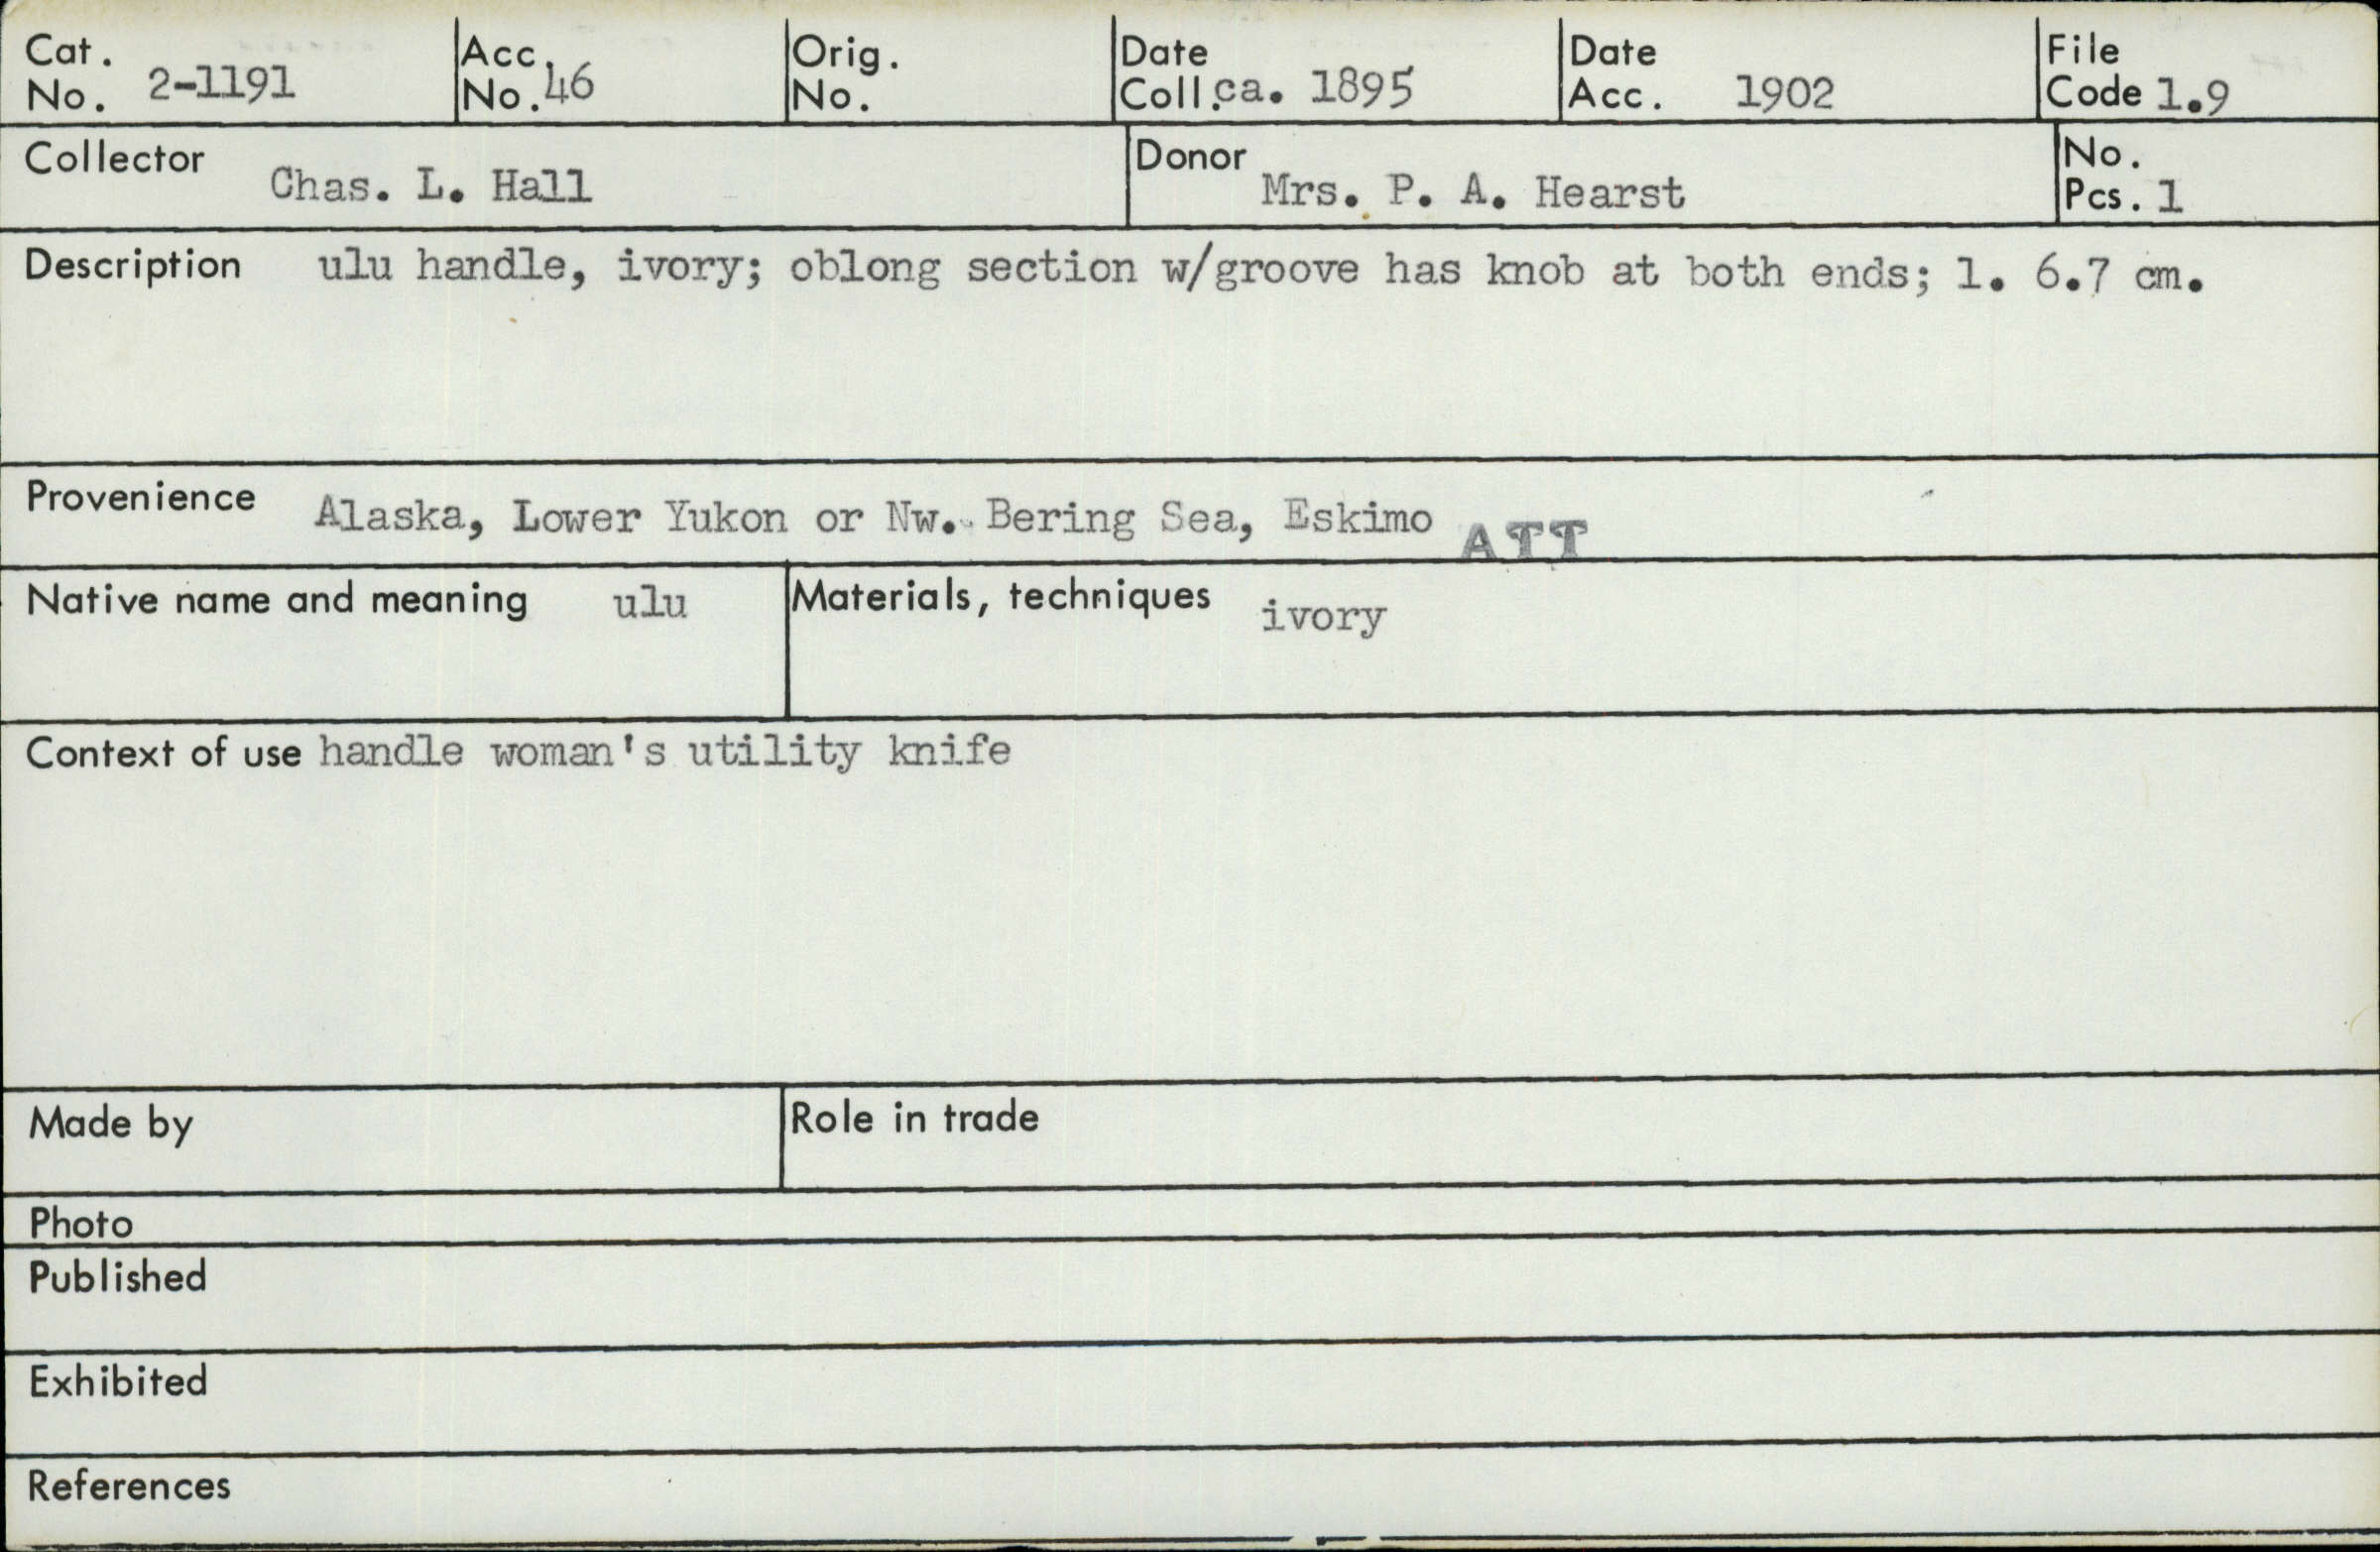 Cat. No. 2-1191 Acc. No. 46 Orig. No. Date Coll. ca. 1895 Date Acc. 1902 File Code 1.9
Collector Chas. L. Hall Donor Mrs. P. A. Hearst No. Pcs. 1
Description ulu handle, ivory; oblong section w/groove has knob at both ends; l. 6.7 cm.
Provenience Alaska, Lower Yukon or Nw. Bering Sea, Eskimo ATT
Native name and meaning ulu Materials, techniques ivory
Context of use handle woman's utility knife
Made by Role in trade
Photo
Published
Exhibited
References